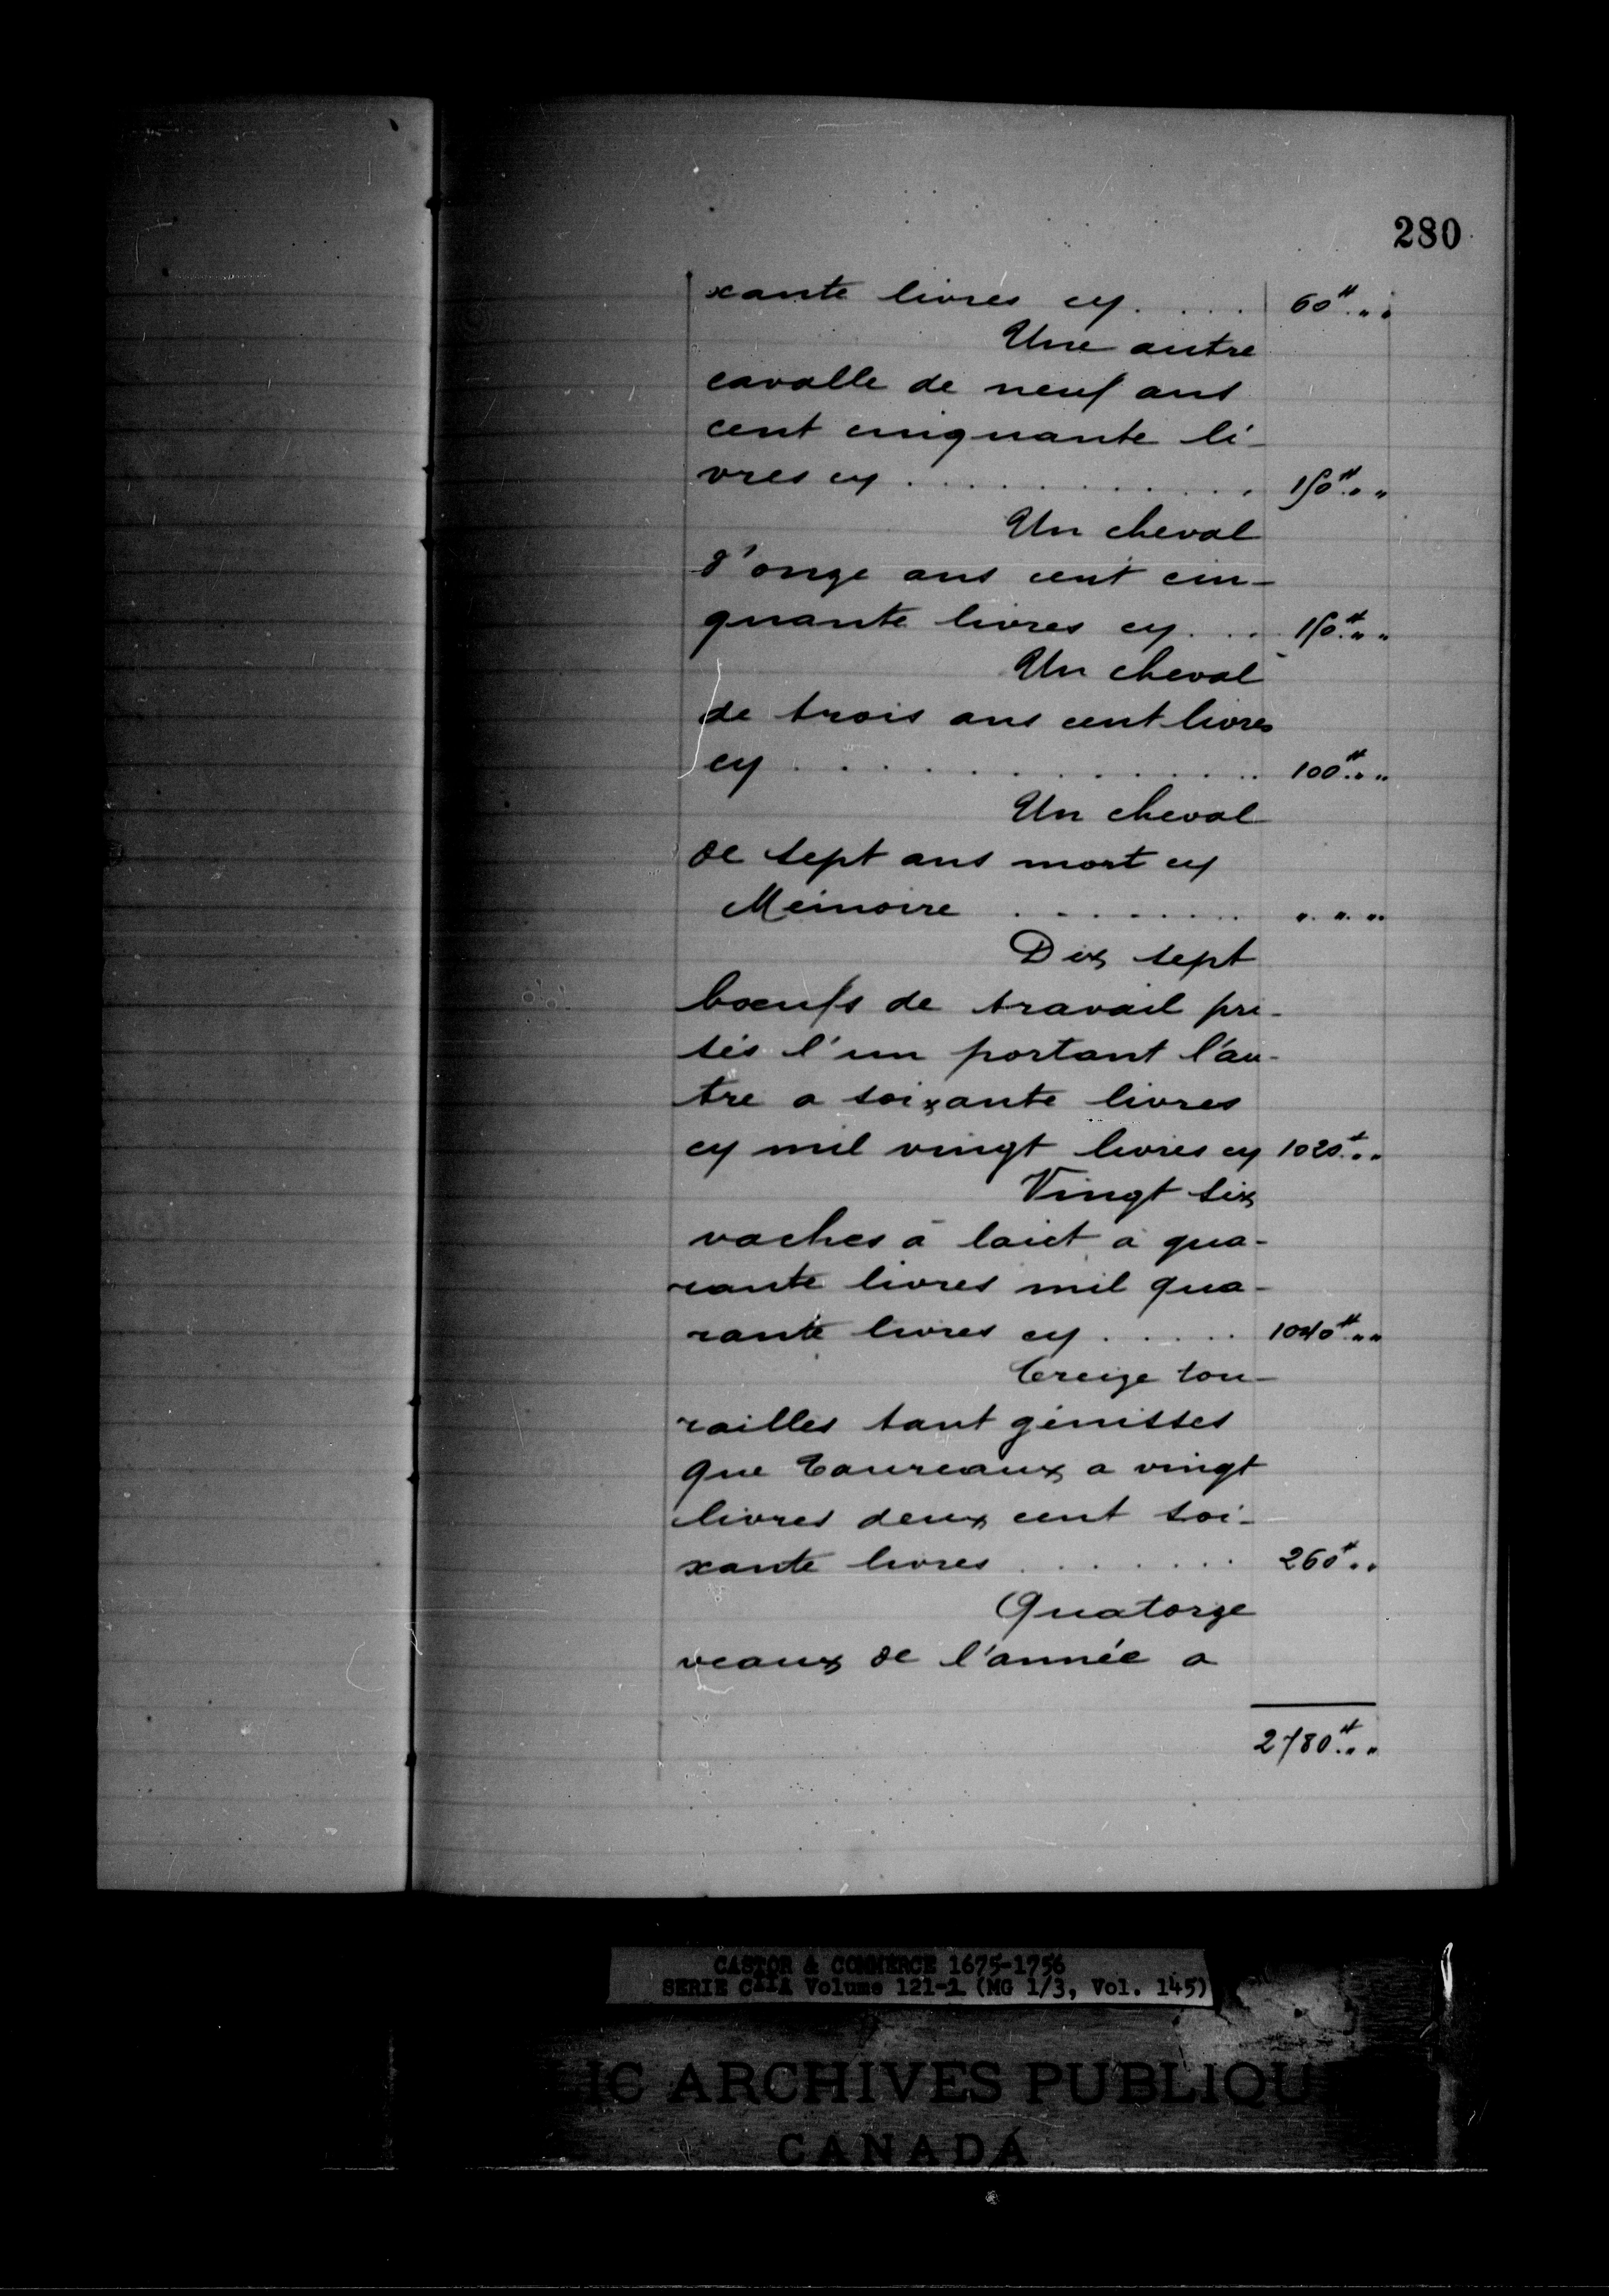 280
xante livres cy..... 60# „ „
Une autre
cavalle de neuf ans
cent cinquante li-
vres cy............. 150# „ „
Un cheval
d'onze ans cent cin-
quante livres cy.... 150# „ „
Un cheval
de trois ans cent livres
cy.............. 100# „ „
Un cheval
de sept ans mort cy
Mémoire ......... „ „ „
Dix sept
bœufs de travail pri-
sés l'un portant l'au-
tre a soixante livres
cy mil vingt livres cy 1020# „ „
Vingt six
vaches à laict à qua-
rante livres mil qua-
rante livres cy...... 1040# „ „
Treize tou-
railles tant génisses
que Taureaux a vingt
livres deux cent soi-
xante livres ....... 260# „ „
Quatorze
veaux de l'année a
2780# „ „
CASTOR & COMMERCE 1675-1756
SERIE C11A Volume 121-1 (MG 1/3, Vol. 145)
IC ARCHIVES PUBLIQU
CANADA